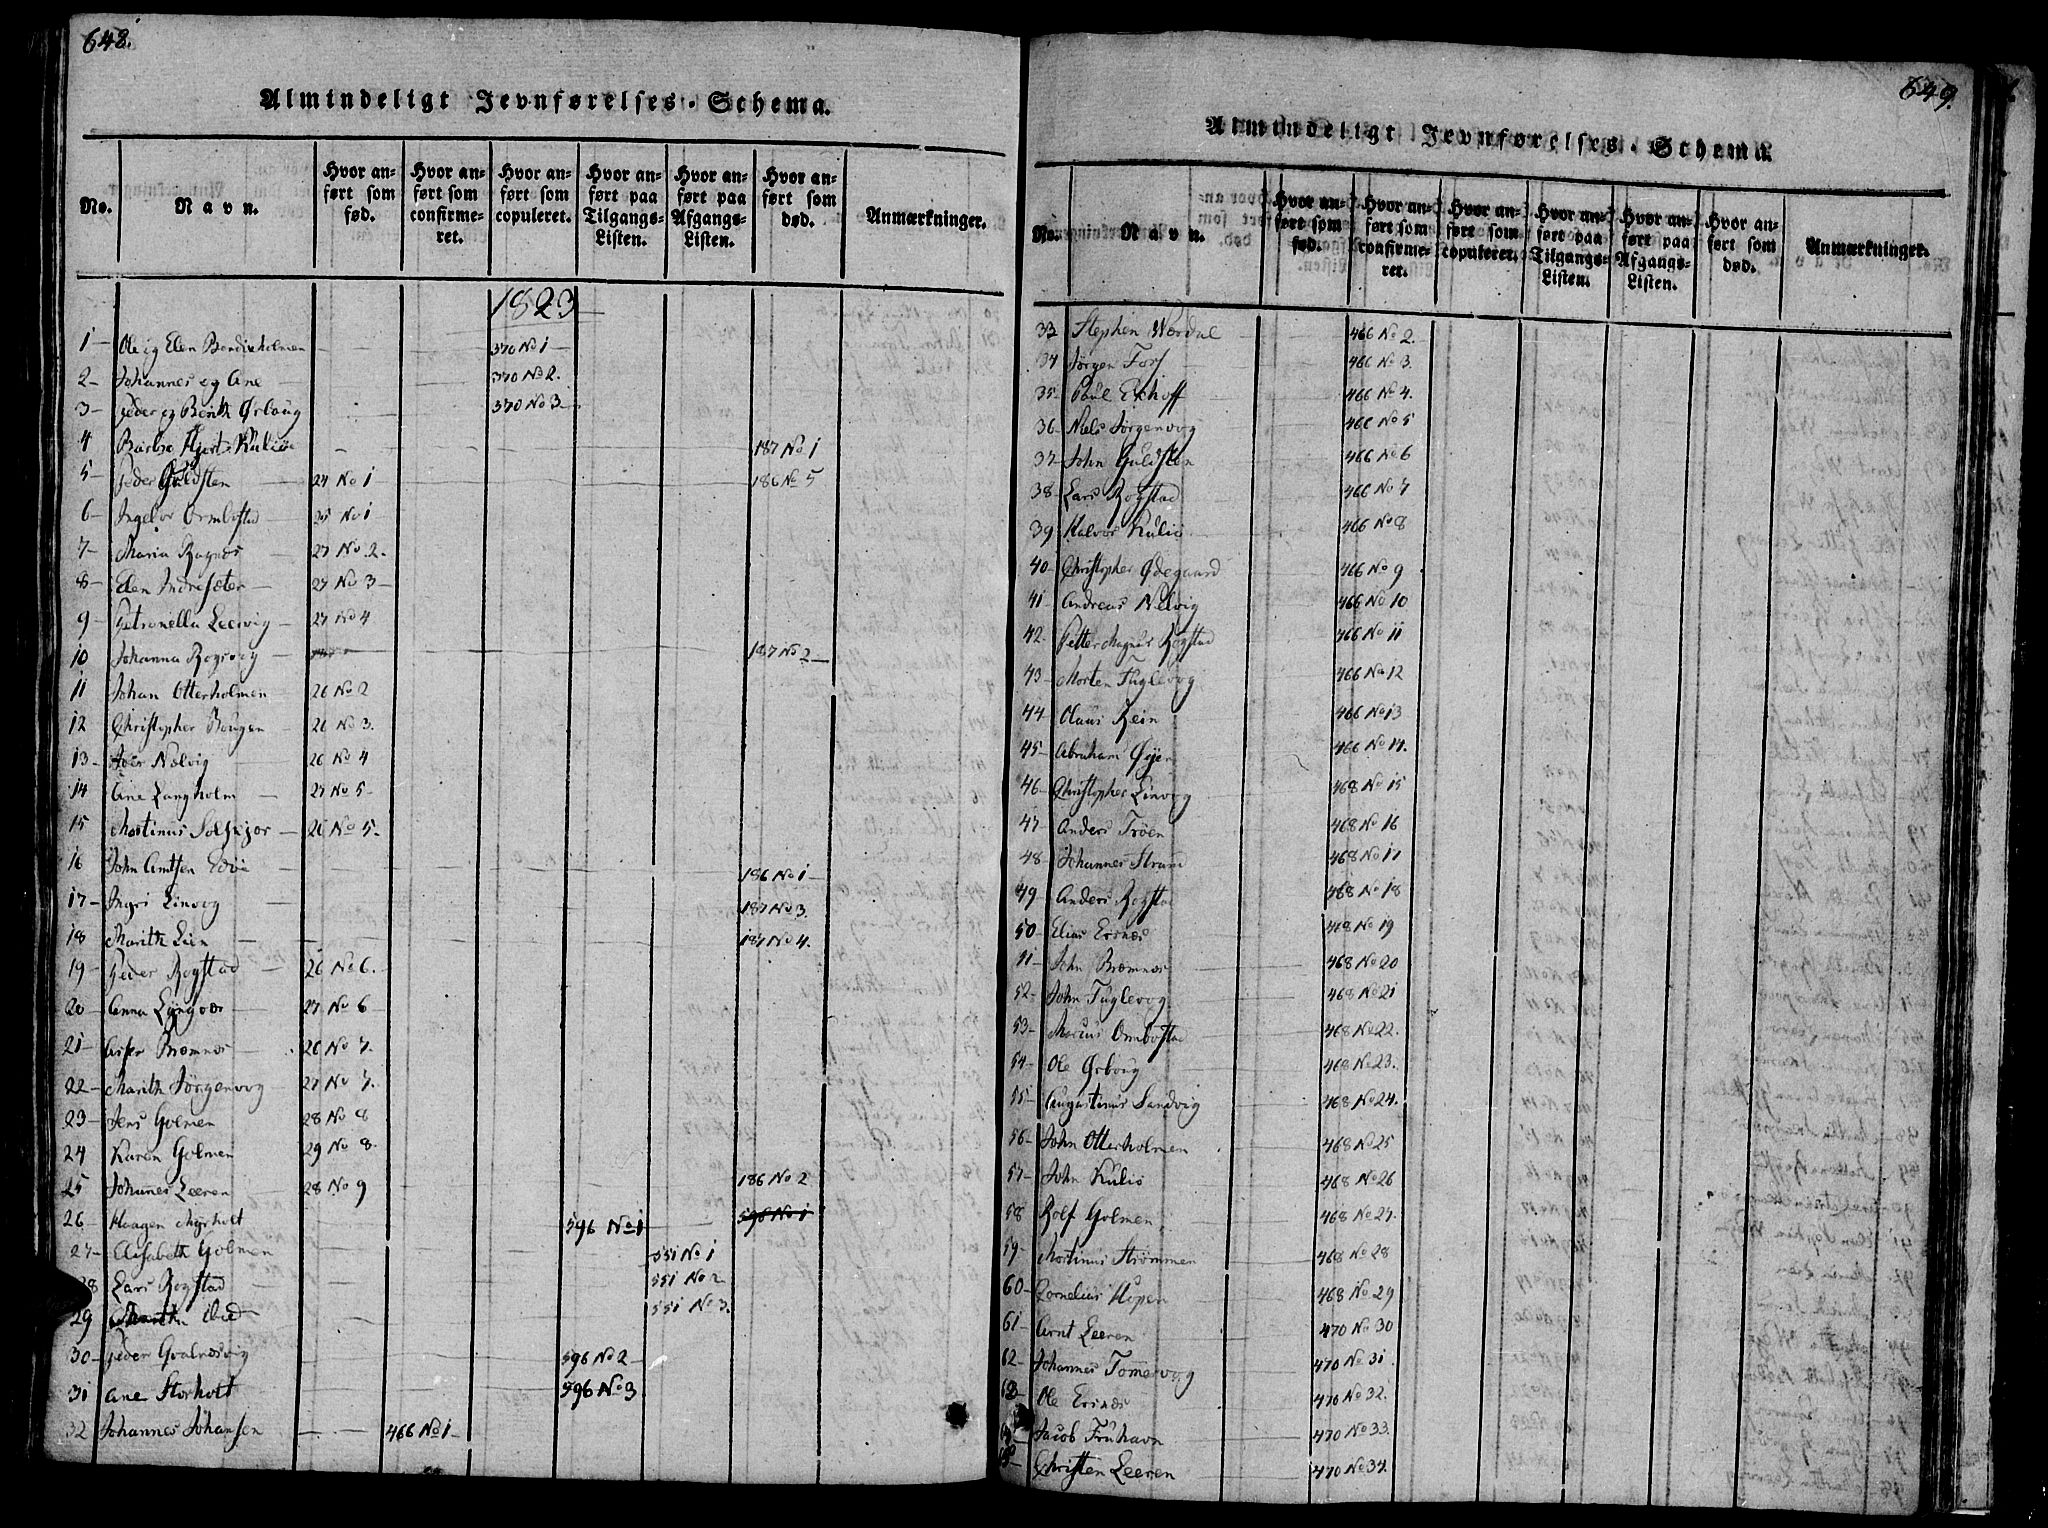 648.
Almindeligt Jevnførelses-Schema.
No.
Navn.
Hvor anført som fød.
Hvor anført som confirmeret.
Hvor anført som copuleret.
Hvor anført paa Tilgangs-Listen.
Hvor anført paa Afgangs-Listen.
Hvor anført som død.
Anmærkninger.
1823
1 Ole og Elen Bendixholmen 370 No 1
2 Johannes og Ane 370 No 2.
3 Peder og Berith Ørbaug 370 No 3
4 Barbro Hjort Kuliøe 187 No 1
5 Peder Guldsten 24 No 1 186 No 5
6 Ingebor Ormbostad 25 No 1
7 Maria Ragnes 27 No 2.
8 Elen Indresæter 27 No 3
9 Petronella Leervig 27 No 4
10 Johanna Rogvog 187 No 2
11 Johan Otterholmen 26 No 2
12 Christopher Bougen 26 No 3.
13 Joer Nelvig 26 No 4
14 Ane Langholm 27 No 5
15 Mortinus Solskjør 26 No 5.
16 John Arntsen Edøe 186 No 1
17 Ingri Linvog 187 No 3.
18 Marith Lien 187 No 4.
19 Peder Rogstad 26 No 6.
20 Anna Lyngvær 27 No 6
21 Bremnes 26 No 7.
22 Marith Jørgenvog 27 No 7.
23 Jens Golmen 28 No 8
24 Karen Golmen 29 No 8
25 Johanes Leeren 28 No 9 186 No 2
26 Haagen Myrholt 596 No 1 596 No 1
27 Elisabeth Golmen 551 No 1
28 Lars Rogstad 551 No 2
29 Marith ibid 551 No 3.
30 Peder Gvalnesvig 596 No 2
31 Ane Storholt 596 No 3
32 Johannes Johansen 466 No 1
649.
Almindeligt Jevnførelses-Schema.
No.
Navn.
Hvor anført som fød.
Hvor anført som confirmeret.
Hvor anført som copuleret.
Hvor anført paa Tilgangs-Listen.
Hvor anført paa Afgangs-Listen.
Hvor anført som død.
Anmærkninger.
33 Stephen Werdal 466 No 2.
34 Jørgen Fors 466 No 3.
35 Poul Eikhoff 466 No 4.
36 Niels Jørgenvog 466 No 5
37 John Guldsten 466 No 6
38 Lars Rogstad 466 No 7
39 Halvor Kuliø 466 No 8
40 Christopher Ødegaard 466 No 9
41 Andreas Nelvig 466 No 10
42 Petter Magnus Rogstad 466 No 11
43 Morten Fuglevog 466 No 12
44 Olaus Rein 466 No 13
45 Abraham Øyen 466 No 14.
46 Christopher Linvog 468 No 15
47 Anders Trøen 468 No 16
48 Johannes Strand 468 No 17
49 Anders Rogstad 468 No 18
50 Elias Ersnes 468 No 19
51 John Bremnes 468 No 20
52 John Fuglevog 468 No 21
53 Marius Ormbostad 468 No 22.
54 Ole Ørbog 468 No 23.
55 Augustinus Sandvig 468 No 24.
56 John Otterholmen 468 No 25
57 John Kuliø 468 No 26
58 Rolf Golmen 468 No 27.
59 Mortinus Strømmen 468 No 28
60 Cornelius Hopen 468 No 29
61 Arnt Leeren 470 No 30
62 Johannes Tømervog 470 No 31
63 Ole Ersnes 470 No 32.
64 Jacob Fruhavn 470 No 33.
65 Christen Leeren 470 No 34.